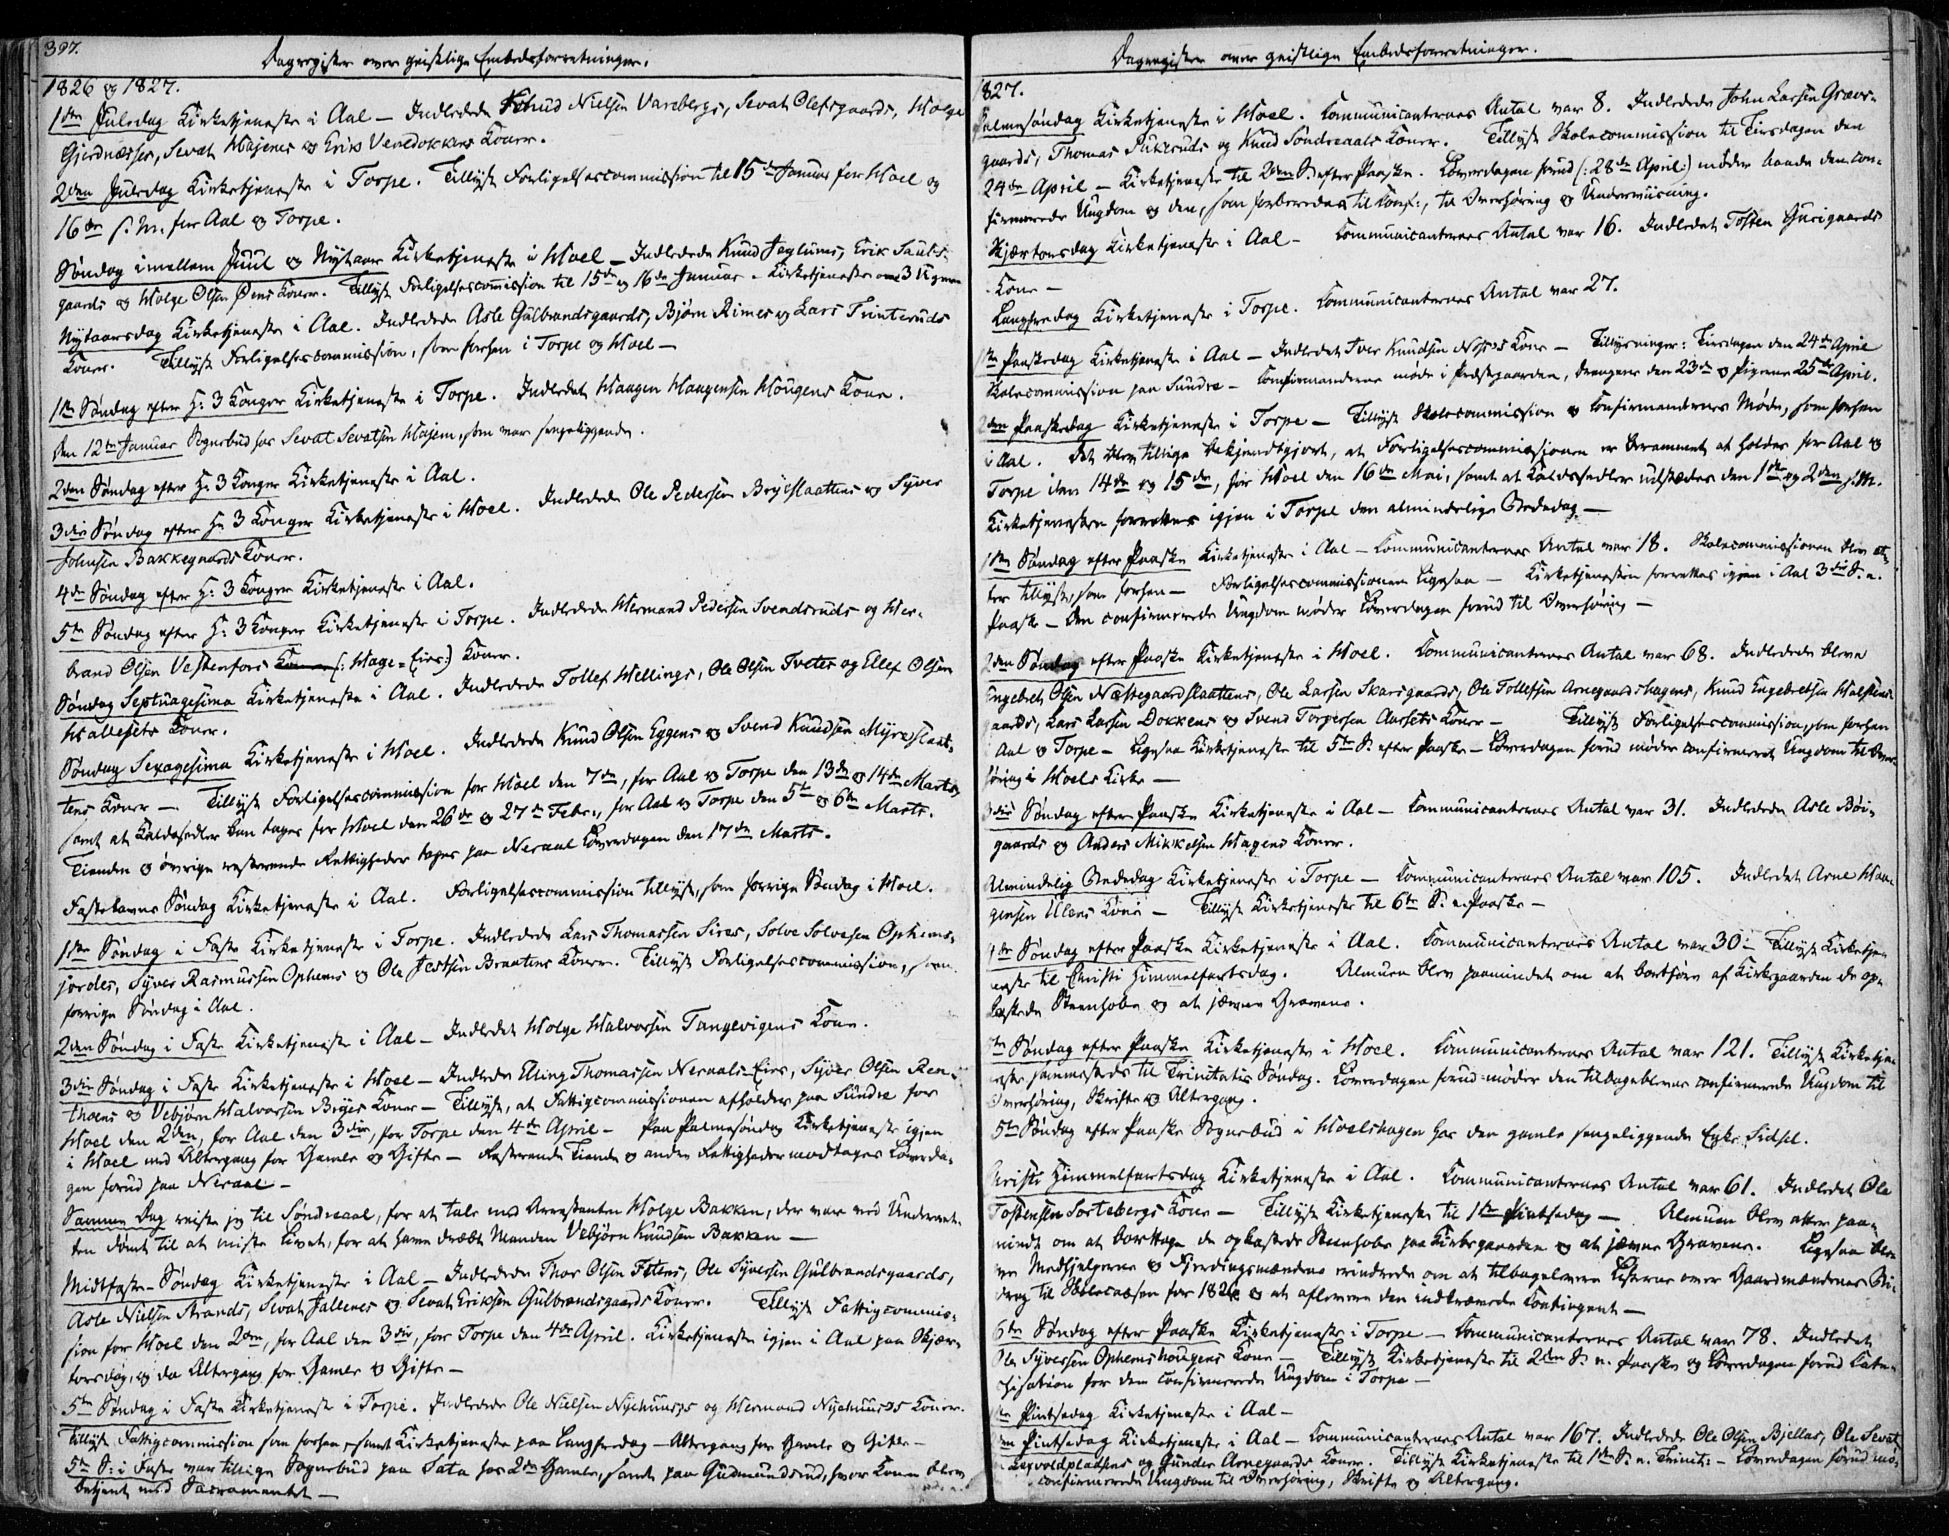 397.
Dagregister over geistlige Embedsforretninger.
1826 og 1827.
1ste Juledag Kirketjeneste i Aal – Indledede Knud Nielsen Varebergs, Sevat Olefsgaards, Holge
Gjerdnæsses, Sevat Hajemes og Erik Vevedokkens Koner.
2den Juledag Kirketjeneste i Torpe. Tillyst Forligelsescommission til 15de Januar for Hoel og
16de s. M. for Aal og Torpe.
Søndag imellem Juul og Nytaar Kirketjeneste i Hoel – Indledede Knud Jeglums, Erik Sauls-
gaards og Holge Olsen Øens Koner. Tillyst Forligelsescommission til 15de og 16de Januar – Kirketjeneste om 3 Uger
Nytaarsdag Kirketjeneste i Aal. Indledede Asle Gulbrandsgaards, Bjørn Rimes og Lars Trinteruds
Koner. Tillyst Forligelsescommission, som forhen i Torpe og Hoel –
1ste Søndag efter H: 3 Konger Kirketjeneste i Torpe. Indledet Haagen Haagensen Hougens Kone.
Den 12te Januar Sognebud hos Sevat Sevatsen Hajem, som var sengeliggende.
2den Søndag efter H: 3 Konger Kirketjeneste i Aal.
3die Søndag efter H: 3 Konger Kirketjeneste i Hoel. Indledede Ole Pedersen Bryeslaattens og Syver
Johnsen Bakkegaards Koner.
4de Søndag efter H: 3 Konger Kirketjeneste i Aal.
5te Søndag efter H: 3 Konger Kirketjeneste i Torpe. Indledede Hermand Pedersen Svendsruds og Her-
brand Olsen Vestenfors (: Hage=Eies:) Koner.
Søndag Septuagesima Kirketjeneste i Aal. Indledede Tollef Hellings, Ole Olsen Tvetes og Ellef Olsen
Hallesets Koner.
Søndag Sexagesima Kirketjeneste i Hoel. Indledede Knud Olsen Eggens og Svend Knudsen Myreslaat-
tens Koner – Tillyst Forligelsescommission for Hoel den 7de, for Aal og Torpe den 13de og 14de Marts,
samt at Kaldssedler kan tages for Hoel den 26de og 27de Febr., for Aal og Torpe den 5te og 6te Marts.
Tienden og øvrige resterende Rettigheder tages paa Neraal Løverdagen den 17de Marts.
Fastelavns Søndag Kirketjeneste i Aal. Forligelsescommission tillyst, som forrige Søndag i Hoel.
1ste Søndag i Faste Kirketjeneste i Torpe. Indledede Lars Thomassen Sires, Solve Solvesen Ophems-
jordes, Syver Rasmussen Ophems og Ole Jestsen Braatens Koner. Tillyst Forligelsescommission, som
forrige Søndag i Aal.
2den Søndag i Faste Kirketjeneste i Aal – Indledet Holge Halvorsen Tangevigens Kone.
3die Søndag i Faste Kirketjeneste i Hoel – Indledede Elling Thomassen Neraals-Eies, Syver Olsen Ren-
thoens og Vebjørn Halvorsen Bryes Koner – Tillyst, at Fattigcommissionen afholdes paa Sundre for
Hoel den 2den, for Aal den 3die, for Torpe den 4de April – Paa Palmesøndag Kirketjeneste igjen
i Hoel med Altergang for Gamle og Gifte – Resterende Tiende og anden Rettigheder modtages Løverda-
gen forud paa Neraal –
Samme Dag reiste jeg til Sondreaal, for at tale med Arrestanten Holge Bakken, der var ved Underret-
ten dømt til at miste Livet, for at have dræbt Manden Vebjørn Knudsen Bakken –
Midtfaste-Søndag Kirketjeneste i Aal – Indledede Thor Olsen Fetens, Ole Syversen Gulbrandsgaards,
Asle Nielsen Strands, Sevat Jallenes og Sevat Eriksen Gulbrandsgaards Koner. Tillyst Fattigcommis-
sion for Hoel den 2den, for Aal den 3die, for Torpe den 4de April. Kirketjeneste igjen i Aal paa Skjær-
torsdag, og da Altergang for Gamle og Gifte –
5te Søndag i Faste Kirketjeneste i Torpe. Indledede Ole Nielsen Nyehuus's og Hermand Nyehuus's Koner.
Tillyst Fattigcommission som forhen, samt Kirketjeneste paa Langfredag – Altergang for Gamle og Gifte –
5te S: i Faste var tillige Sognebud paa Sata hos 2de Gamle, samt paa Gudmundsrud, hvor Konen blev
betjent med Sacramentet –
Dagregister over geistlige Embedsforretninger.
1827.
Palmesøndag Kirketjeneste i Hoel. Communicanternes Antal var 8. Indledede John Larsen Græs-
gaards, Thomas Sukeruds og Knud Sondreaals Koner. Tillyst Skolecommission til Tirsdagen den
24de April – Kirketjeneste til 2den S: efter Paaske. Løverdagen forud (: 28de April:) møder baade den con-
firmerede Ungdom og den, som forberedes til Conf:, til Overhøring og Underviisning.
Skjærtorsdag Kirketjeneste i Aal – Communicanternes Antal var 16. Indledet Tosten Gurigaards
Kone –
Langfredag Kirketjeneste i Torpe. Communicanternes Antal var 27.
1ste Paaskedag Kirketjeneste i Aal – Indledet Iver Knudsen Noss's Kone – Tillysninger: Tirsdagen den 24de April
Skolecommission paa Sundre – Confirmanderne møde i Præstgaarden, Drengene den 23de og Pigerne 25de April.
2den Paaskedag Kirketjeneste i Torpe – Tillyst Skolecommission og Confirmandernes Møde, som forhen
i Aal. Det blev tillige bekjendtgjort, at Forligelsescommissionen er berammet at holdes for Aal og
Torpe den 14de og 15de, for Hoel den 16de Mai, samt at Kaldssedler udstædes den 1ste og 2den s. M.
Kirketjenesten forrettes igjen i Torpe den almindelige Bededag –
1ste Søndag efter Paaske Kirketjeneste i Aal – Communicanternes Antal var 18. Skolecommissionen blev et-
ter tillyst, som forhen – Forligelsescommissionen ligesaa – Kirketjenesten forrettes igjen i Aal 3die S. e.
Paaske – Den confirmerede Ungdom møder Løverdagen forud til Overhøring –
2den Søndag efter Paaske Kirketjeneste i Hoel. Communicanternes Antal var 68. Indledede bleve
Engebret Olsen Nættegaardslaattens, Ole Larsen Skarsgaards, Ole Tollefsen Arnegaardshagens, Knud Engebretsen Halstens-
gaards, Lars Larsen Dokkens og Svend Torgersen Aarsets Koner – Tillyst Forligelsescommission, som forhen
i Aal og Torpe – Ligesaa Kirketjeneste til 5te S: efter Paaske – Løverdagen forud møder confirmeret Ungdom til Over-
høring i Hoels Kirke –
3die Søndag efter Paaske Kirketjeneste i Aal – Communicanternes Antal var 31. Indledede Asle Bøi-
gaards og Anders Mikkelsen Hagens Koner.
Almindelig Bededag Kirketjeneste i Torpe – Communicanternes Antal var 105. Indledet Arne Haa-
gensen Ulens Kone – Tillyst Kirketjeneste til 6te S: e. Paaske –
4de Søndag efter Paaske Kirketjeneste i Aal. Communicanternes Antal var 30 – Tillyst Kirketje-
neste til Christi Himmelfartsdag. Almuen blev paamindet om at bortføre af Kirkegaarden de op-
kastede Steenhobe og at jævne Gravene.
5te Søndag efter Paaske Kirketjeneste i Hoel. Communicanternes Antal var 121. Tillyst Kirketje-
neste sammesteds til Trinitatis Søndag. Løverdagen forud møder den tilbageblevne confirmerede Ungdom til
Overhøring, Skrifte og Altergang.
5te Søndag efter Paaske Sognebud i Hoelshagen hos den gamle sengeliggende Enke Sidsel.
Christi Himmelfartsdag Kirketjeneste i Aal. Communicanternes Antal var 61. Indledet Ole
Tostensen Sortebergs Kone – Tillyst Kirketjeneste til 1ste Pintsedag – Almuen blev atter paa-
mindt om at borttage de opkastede Steenhobe paa Kirkegaarden og at jævne Gravene. Ligesaa blev
Medhjelperne og Fjerdingsmændene erindrede om at tilbagelevere Listerne over Gaardmændenes Bi-
drag til Skolecassen for 1826 og at aflevere den indkrævede Contingent –
6te Søndag efter Paaske Kirketjeneste i Torpe – Communicanternes Antal var 78. Indledet
Ole Syversen Ophemshougens Kone – Tillyst Kirketjeneste til 2den S. e. Paaske og Løverdagen forud Cate-
chisation for den confirmerede Ungdom i Torpe –
1ste Pintsedag Kirketjeneste i Aal –
2den Pintsedag Kirketjeneste i Aal – Communicanternes Antal var 167. Indledede Ole Olsen Bjellas, Ole Sevat-
Leqvoldpladses og Gunder Arnegaards Koner. Tillyst Kirketjeneste til 1ste S. e. Trinit: – Løverdagen forud mø-
confirmerede Ungdom til Overhøring, Skrifte og Altergang.